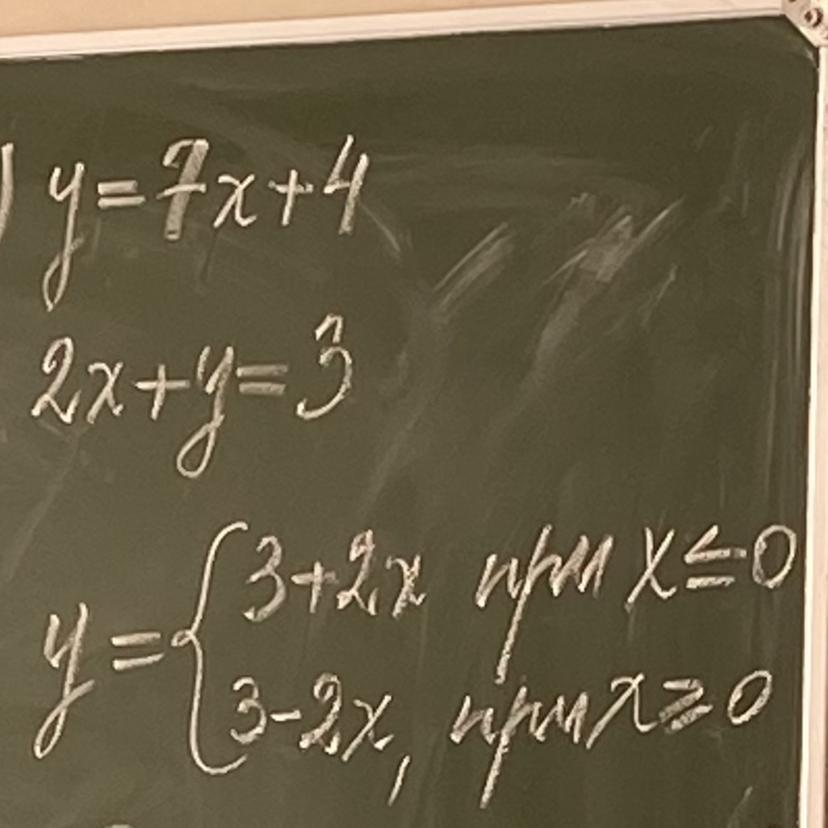 ) y=7x+4
2x+y=3
y={3+2x при x≤0
3-2x, при x≥0